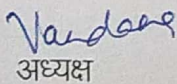 Vandana
अध्यक्ष